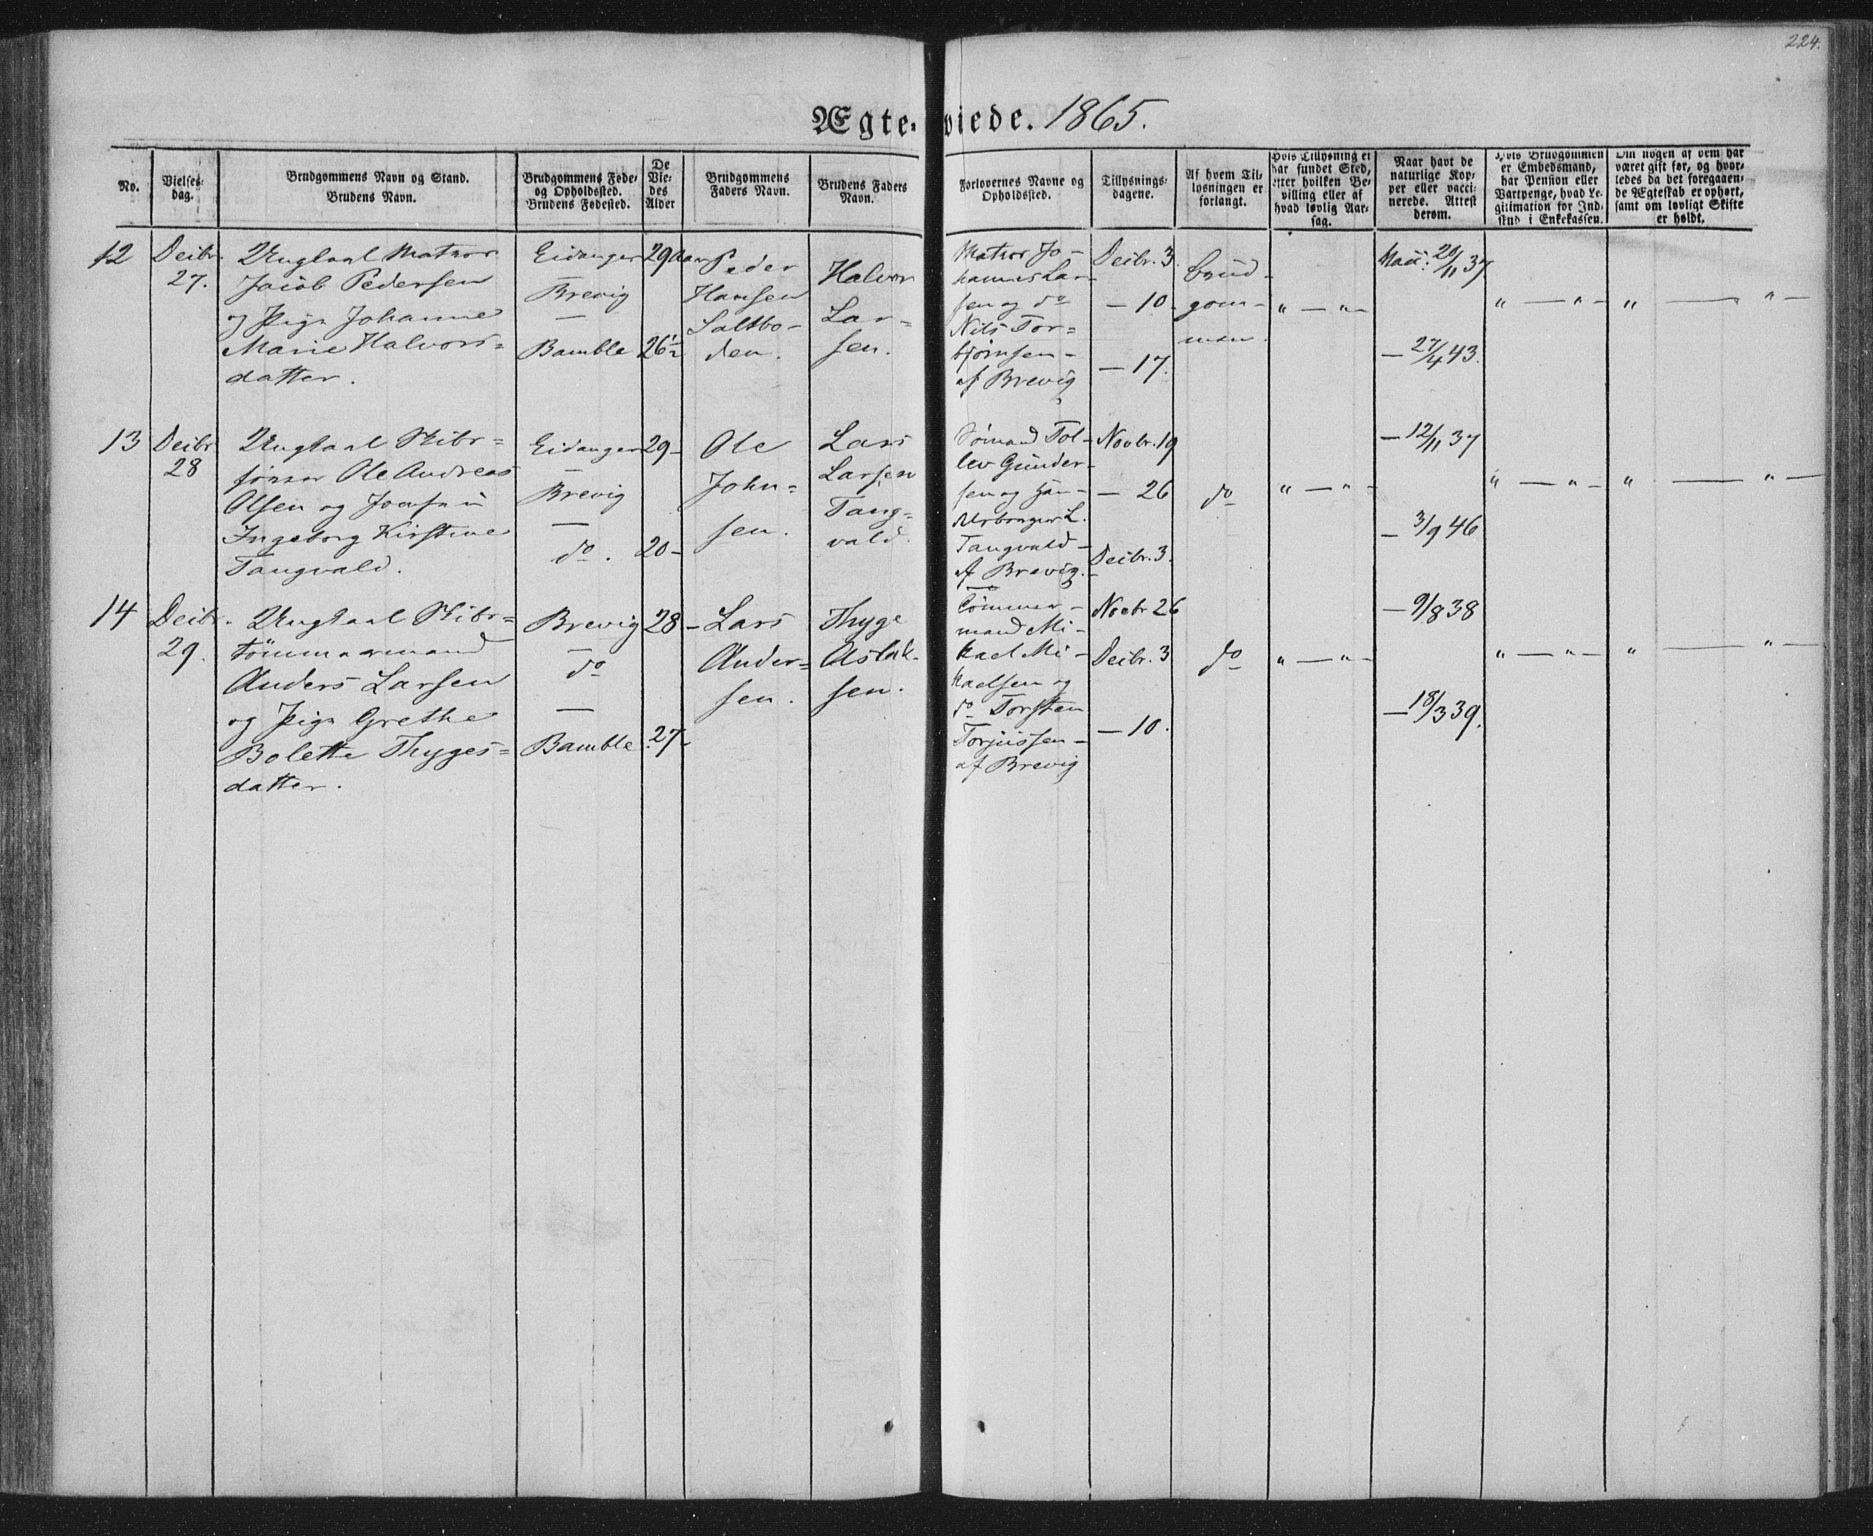 224.
Ægte-viede. 1865.
No.
Vielses-
dag.
Brudgommens Navn og Stand.
Brudens Navn.
Brudgommens Føde-
og Opholdssted.
Brudens Fødested.
De
Vie-
des
Alder
Brudgommens
Faders Navn.
Brudens Faders
Navn.
Forlovernes Navne og
Opholdssted.
Tillysnings-
dagene.
Af hvem Til-
lysningen er
forlangt.
Hvis Tillysning ei
har fundet Sted,
efter hvilken Be-
villing eller af
hvad lovlig Aar-
sag.
Naar havt de
naturlige Kop-
per eller vacci-
nerede. Attest
derom.
Hvis Brudgommen
er Embedsmand,
har Pension eller
Vartpenge, hvad Le-
gitimation for Ind-
skud i Enkekassen.
Om nogen af dem har
været gift før, og hvor-
ledes da det foregaaen-
de Ægteskab er ophørt,
samt om lovligt Skifte
er holdt.
12
Decbr.
27.
Ungkarl Matros
Jacob Pedersen
og Pige Johanne
Marie Halvors-
datter.
Eidanger
Brevig
—
Bamble
29 Aar
26½
Peder
Hansen
Saltbo-
den.
Halvor
Lar-
sen.
Matros Jo-
hannes Lar-
sen og do
Nils Tor-
bjørnsen -
af Brevig
Decbr. 3.
— 10.
— 17.
Brud-
gom-
men.
" — " —
Vacc. 20/11 37
— 27/4 43.
" — " —
" — " —
13
Decbr
28
Ungkarl Skibs-
fører Ole Andreas
Olsen og Jomfru
Ingeborg Kirstine
Tangvald.
Eidanger
Brevig
—
do.
29 -
20 -
Ole
John-
sen.
Lars
Larsen
Tang-
vald.
Sømand Tol-
lev Gunder-
sen og
L.
Tangvald -
af Brevig.
Novbr. 19
— 26
Decbr. 3.
do
" — " -
— 12/11 37
— 3/9 46
" — " -
" — " —
14
Decbr.
29.
Ungkarl Skibs-
tømmermand
Anders Larsen
og Pige Grethe
Bolette Thyges-
datter.
Brevig
do
—
Bamble
28 -
27 -
Lars
Ander-
sen.
Thyge
Aslak-
sen.
Tømmer-
mand Mi-
kael Mi-
kaelsen og
do Torsten
Torjussen -
af Brevig
Novbr 26
Decbr. 3
— 10.
do
" — " —
— 9/8 38
— 18/3 39.
" — " —
" — " —